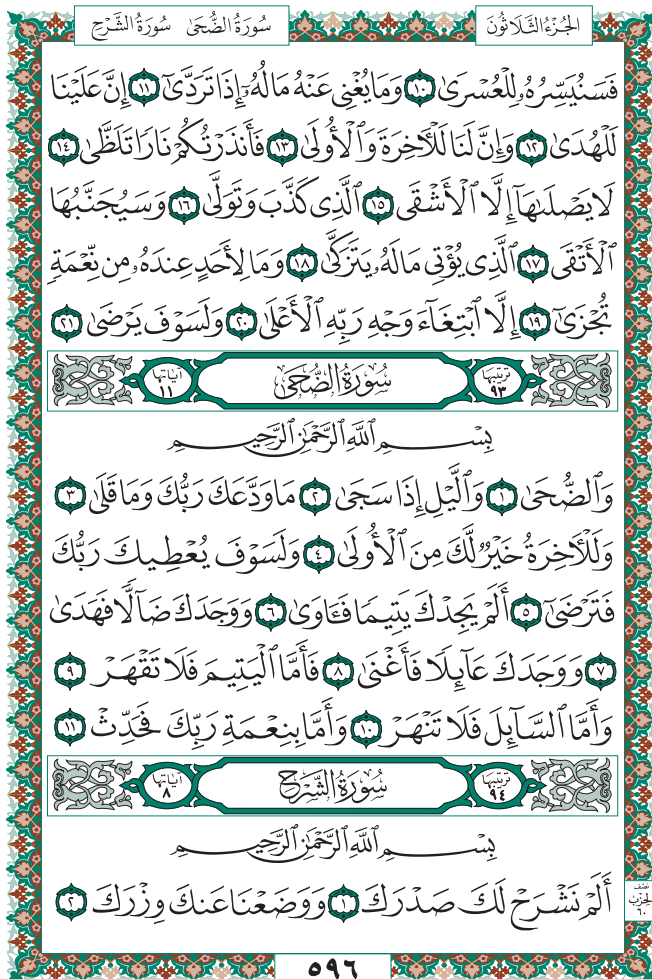 الجُزْءُ الثَّلَاثُونَ
سُورَةُ الضُّحَى سُورَةُ الشَّرْحِ
فَسَنُيَسِّرُهُۥ لِلْعُسْرَىٰ ١٠ وَمَا يُغْنِى عَنْهُ مَالُهُۥٓ إِذَا تَرَدَّىٰٓ ١١ إِنَّ عَلَيْنَا
لَلْهُدَىٰ ١٢ وَإِنَّ لَنَا لَلْءَاخِرَةَ وَٱلْأُولَىٰ ١٣ فَأَنذَرْتُكُمْ نَارًا تَلَظَّىٰ ١٤
لَا يَصْلَىٰهَآ إِلَّا ٱلْأَشْقَى ١٥ ٱلَّذِى كَذَّبَ وَتَوَلَّىٰ ١٦ وَسَيُجَنَّبُهَا
ٱلْأَتْقَى ١٧ ٱلَّذِى يُؤْتِى مَالَهُۥ يَتَزَكَّىٰ ١٨ وَمَا لِأَحَدٍ عِندَهُۥ مِن نِّعْمَةٍ
تُجْزَىٰٓ ١٩ إِلَّا ٱبْتِغَآءَ وَجْهِ رَبِّهِ ٱلْأَعْلَىٰ ٢٠ وَلَسَوْفَ يَرْضَىٰ ٢١
ترتيبها ٩٣ سُورَةُ الضُّحَىٰ آياتها ١١
بِسْمِ ٱللَّهِ ٱلرَّحْمَٰنِ ٱلرَّحِيمِ
وَٱلضُّحَىٰ ١ وَٱلَّيْلِ إِذَا سَجَىٰ ٢ مَا وَدَّعَكَ رَبُّكَ وَمَا قَلَىٰ ٣
وَلَلْءَاخِرَةُ خَيْرٌ لَّكَ مِنَ ٱلْأُولَىٰ ٤ وَلَسَوْفَ يُعْطِيكَ رَبُّكَ
فَتَرْضَىٰٓ ٥ أَلَمْ يَجِدْكَ يَتِيمًا فَـَٔاوَىٰ ٦ وَوَجَدَكَ ضَآلًّا فَهَدَىٰ
٧ وَوَجَدَكَ عَآئِلًا فَأَغْنَىٰ ٨ فَأَمَّا ٱلْيَتِيمَ فَلَا تَقْهَرْ ٩
وَأَمَّا ٱلسَّآئِلَ فَلَا تَنْهَرْ ١٠ وَأَمَّا بِنِعْمَةِ رَبِّكَ فَحَدِّثْ ١١
ترتيبها ٩٤ سُورَةُ الشَّرْحِ آياتها ٨
بِسْمِ ٱللَّهِ ٱلرَّحْمَٰنِ ٱلرَّحِيمِ
أَلَمْ نَشْرَحْ لَكَ صَدْرَكَ ١ وَوَضَعْنَا عَنكَ وِزْرَكَ ٢
نصف
الحزب
٦٠
٥٩٦